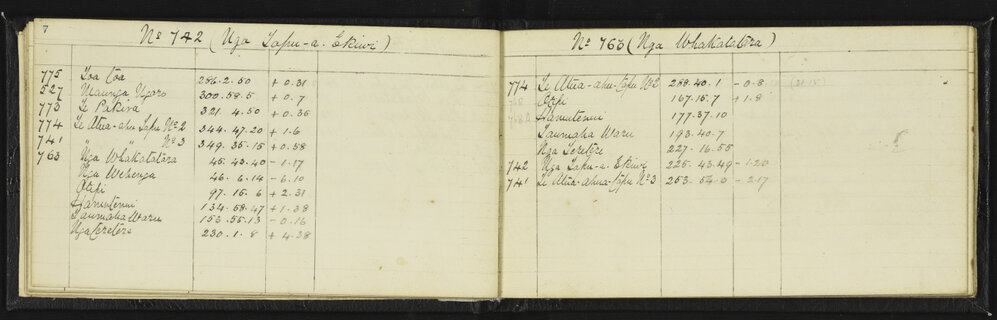 7
No 742 (Nga Tapu-a. Ekiwi)
775 Toa Toa 286.2.50 + 0.31
527 Maunga Ngaro 300.58.5 + 0.7
773 Te Pikira 321.4.50 + 0.36
774 Te Atua-ahu Tapu No 2 344.47.20 + 1.6
741 " " No 3 349.35.15 + 0.58
763 Nga Whakatatara 45.43.40 - 1.17
Nga Wehenga 46.6.14 - 6.10
Otipi 97.15.6 + 2.31
Hamutenui 134.58.47 + 1.38
Taumaha Waru 153.55.13 - 0.16
Nga Teretere 230.1.8 + 4.38
No 763 (Nga Whakatatara)
774 Te Atua-ahu-Tapu No 2 288.40.1 - 0.8
768 Otipi 167.15.7 + 1.8
768A Hamutenui 177.37.10
Taumaha Waru 193.40.7
Nga Teretere 227.16.55
742 Nga Tapu-a. Ekiwi 225.43.49 - 1.20
741 Te Atua-ahua-Tapu No 3 253.54.0 - 2.17